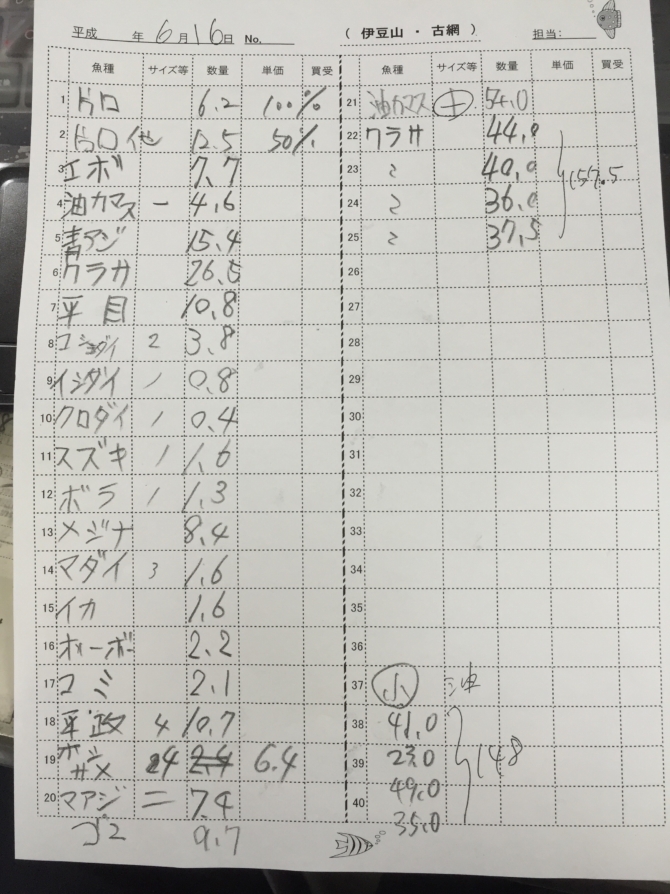 平成 年 6月16日 No. ( 伊豆山 ・ 古網 ) 担当:
魚種 サイズ等 数量 単価 買受
1 片口 6.2 100%
2 片口 他 12.5 50%
3 エボ 7.7
4 油カマス 一 4.6
5 青アジ 15.4
6 ワラサ 26.5
7 平目 10.8
8 コショウダイ 2 3.8
9 イシダイ 1 0.8
10 クロダイ 1 0.4
11 スズキ 1 1.6
12 ボラ 1 1.3
13 メジナ 8.4
14 マダイ 3 1.6
15 イカ 1.6
16 2.2
17 ゴミ 2.1
18 平政 4 10.7
19 ホシザメ 4 6.4
20 マアジ 二 7.4
9.7
魚種 サイズ等 数量 単価 買受
21 油カマス 54.0
22 ワラサ 44.0
23 〃 40.0
24 〃 36.0
25 〃 37.5
157.5
26
27
28
29
30
31
32
33
34
35
36
37 小 油
38 41.0
39 23.0
40 49.0
35.0
148